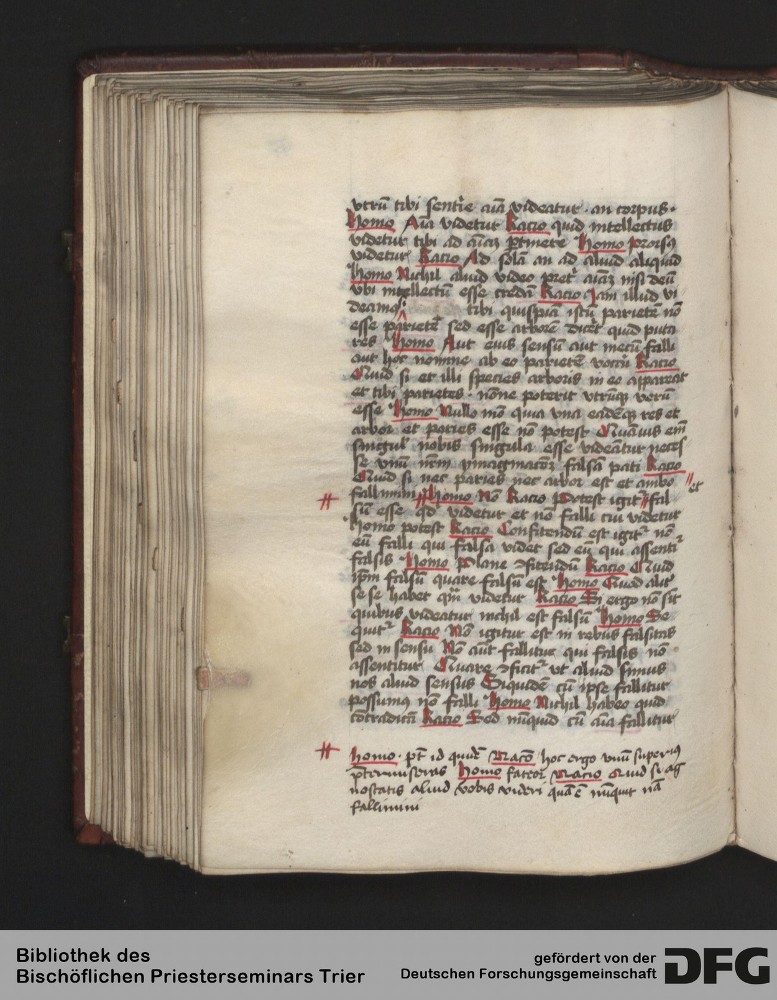 vtrū tibi sentire aīa videatur · an corpus ·
homo Aīa videtur Racio quid intellectus
videtur tibi ad aīam ptinere homo prorsus
videtur Racio Ad solā an ad aliud aliquid
homo Nichil aliud video preter aīam nisi deū
vbi intellectū esse credā Racio Iam illud vi
deamus tibi quispiā istū parietē nō
esse parietē sed esse arborē diceret quid puta
res homo Aut eius sensū aut meū falli
aut hoc nomine ab eo parietē vocari Racio
Quid si et illi species arboris in eo appareat
et tibi parietis · nōne poterit vtrūque verū
esse homo Nullo mō quia vna eadēque res et
arbor et paries esse nō potest Quāuis em̄
singul' nobis singula esse videātur neces
se vnū nr̄m ymaginacōem falsā pati Racio
Quid si nec paries nec arbor est et ambo
et
fallimini homo Nō Racio Potest igitur fal
sū esse qd videtur et nō falli cui videtur
homo potest Racio Confitendū est igitur nō
eū falli qui falsa videt sed eū qui assentitur
falsis homo Plane ɔfitendū Racio Quid
ipm̄ falsū quare falsū est homo Quod aliter
sese habet quā videtur Racio Si ergo nō sint
quibus videatur nichil est falsū homo Se
quitur Racio Nō igitur est in rebus falsitas
sed in sensu Nō aūt fallitur qui falsis nō
assentitur Quare ɔficitur vt aliud simus
nos aliud sensus Siquidē cū ipse fallitur
possumus nō falli homo Nichil habeo quod
cōtradicā Racio Sed nūquid cū aīa fallitur
homo · pt id quidē Racō hoc ergo vnū superius
pretermiseras homo fateor Racio Quid si ag
nostatis aliud vobis videri quā ē nūquit nā
fallimini
Bibliothek des
Bischöflichen Priesterseminars Trier
gefördert von der
Deutschen Forschungsgemeinschaft
DFG